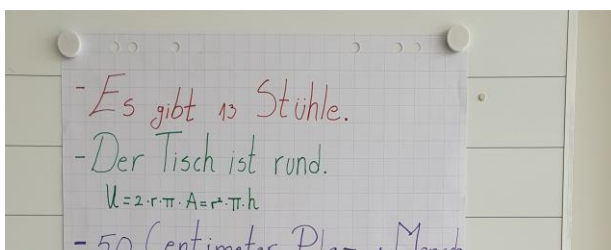 - Es gibt 13 Stühle.
- Der Tisch ist rund.
U = 2·r·π· A = r²·π·h
- 50 Centimeter